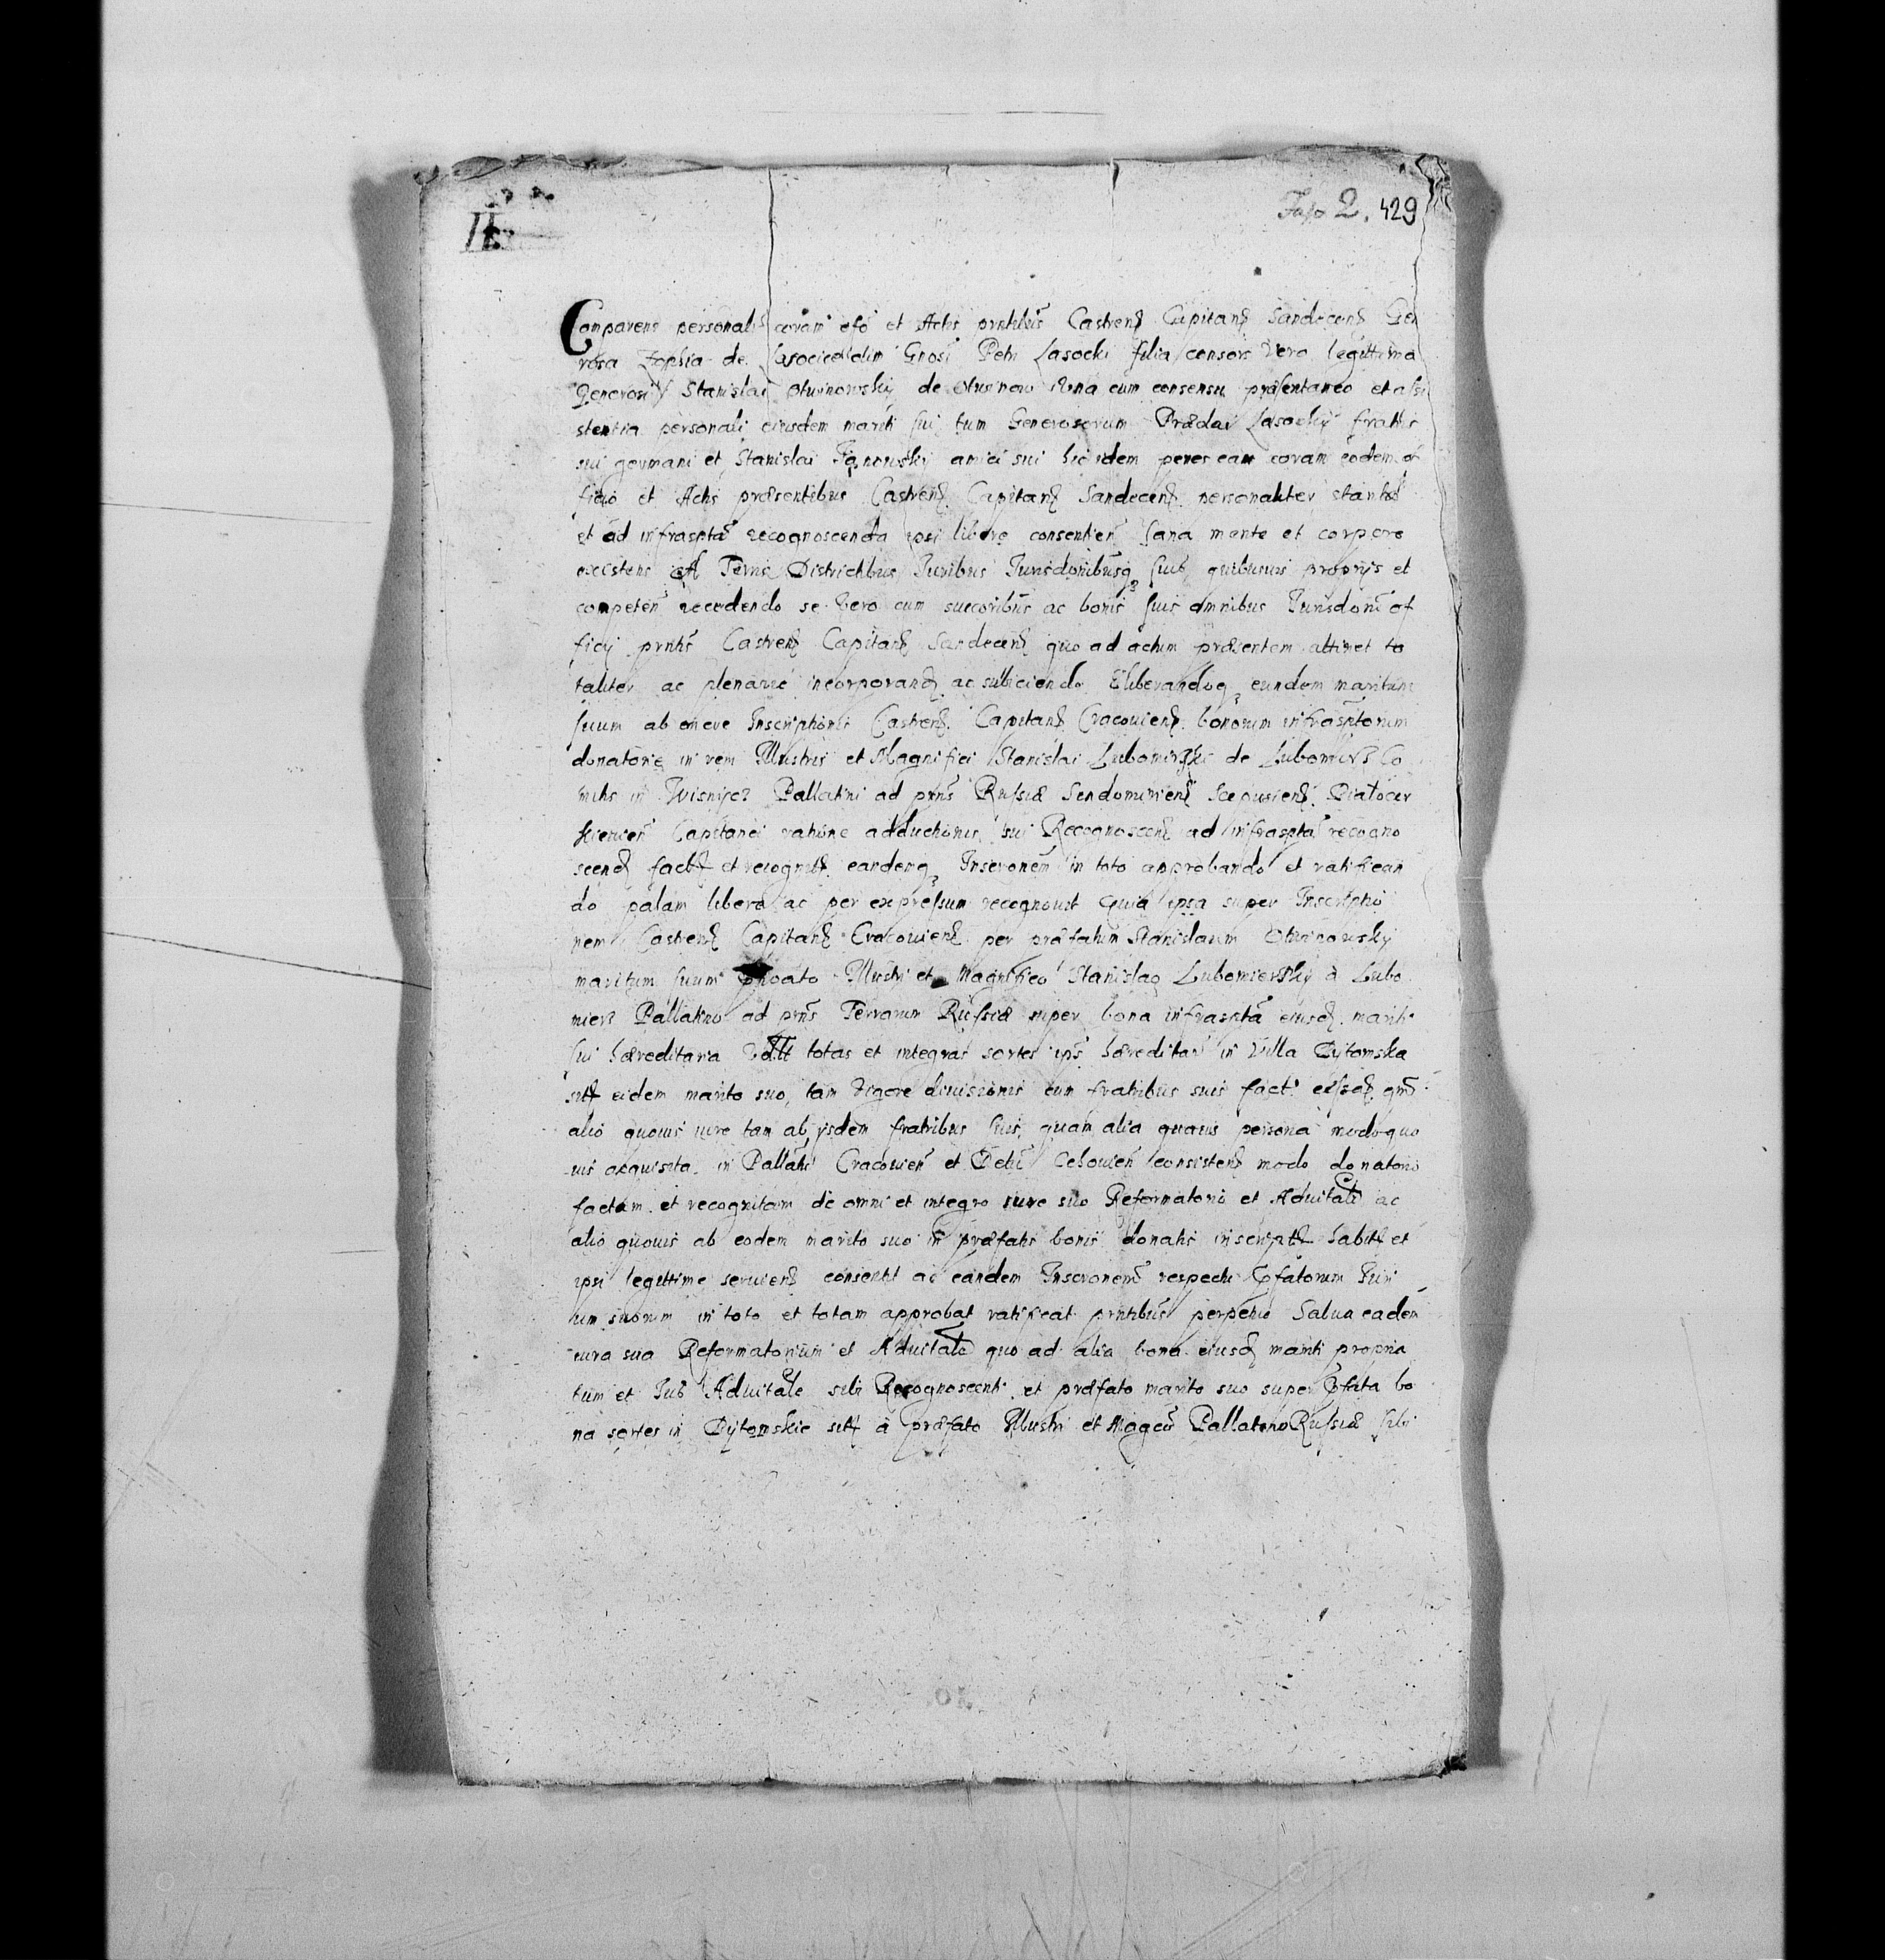 Fasc 2. 429
Comparens personalr coram offo et Actis prntibus Castren Capitan Sandecen Gen
rosa Zophia de Gnosi Petri Lasocki filia consors vero legittima
Generosi Stanislai Otwinowsky de Otwinow una cum consensu præsentaneo et assi
stentia personali eiusdem mariti sui tum Generosorum Prædai Lasocky fratris
sui germani et Stanislai amici sui hic idem penes eam coram eodem of
ficio et Actis præsentibus Castren Capitan Sandecen personaliter stantes
et ad infrascpta recognoscenda ipsi libere consentien sana mente et corpore
existens A Terris Districtibus Iuribus Iurisdonibusq suis quibusuis proprys et
competen recedendo se vero cum succoribus ac bonis suis omnibus Iurisdoni of
ficy prntis Castren Capitan Sandecen quo ad actum præsentem attinet to
taliter ac plenarie incorporand ac subiiciendo Eliberandoq eundem maritum
suum ab onere Inscriptionis Castren Capitan Cracouien bonorum infrascptorum
donatorie in rem Illustris et Magnifici Stanislai Lubomirski de Lubomierz Co
mitis in Wisnicz Pallatini ad prns Russiæ Sendomirien Scepusien Białocer
kieuien Capitanei ratione adductionis sui Recognoscen ad infrascpta recogno
scend fact et recognit eandemq Inscronem in toto approbando et ratifican
do palam libere ac per expressum recognouit Quia ipsa super Inscriptio
nem Castren Capitan Cracouien per præfatum Stanislaum Otwinowsky
maritum suum Illustri et Magnifico Stanislao Lubomiersky à Lubo
mierz Pallatino ad prns Terrarum Russiæ super bona infrascpta eiusd mariti
sui hæreditaria totas et integras sortes ips hæreditar in Villa Bytomska
sitt eidem marito suo, tam vigore diuisionis cum fratribus suis fact
alio quouis iure tam ab ysdem fratribus suis quam alia quauis persona modoquo
uis acquisita in Pallatu Cracouien et consisten modo donatorio
factam et recognitam de omni et integro iure suo Reformatorio et Aduitali ac
alio quouis ab eodem marito suo in præfatis bonis donatis inscript habit et
ipsi legittime seruien consentit ac eandem Inscronem respectu pfatorum Iuri
um suorum in toto et totam approbat ratificat prntibus perpetuo Salua eadem
iura sua Reformatorium et Aduitale quo ad alia bona eiusd mariti propria
tum et Ius Aduitale sibi Recognoscenti et præfato marito suo super pfata bo
na sortes in Bytomskie sitt à præfato Illustri et Magco Pallatino Russiæ sibi